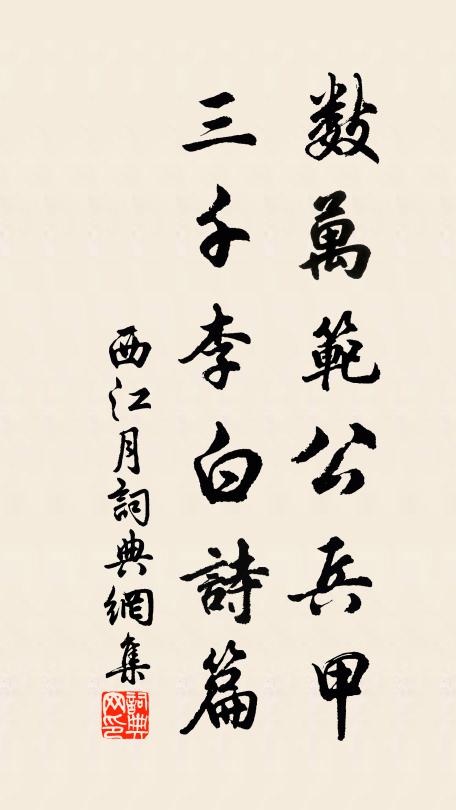 数萬範公兵甲
三千李白詩篇
西江月詞典網集
詞典網印